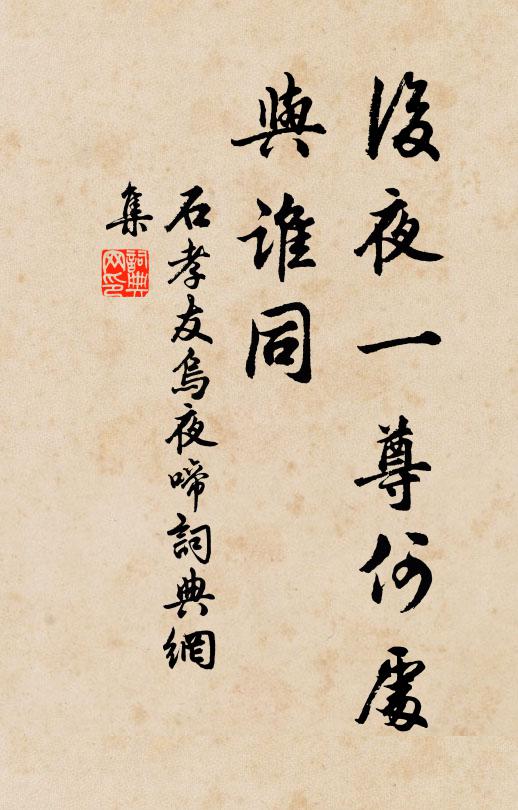 後夜一尊何處
與誰同
石孝友烏夜啼詞典網
集
詞典網印